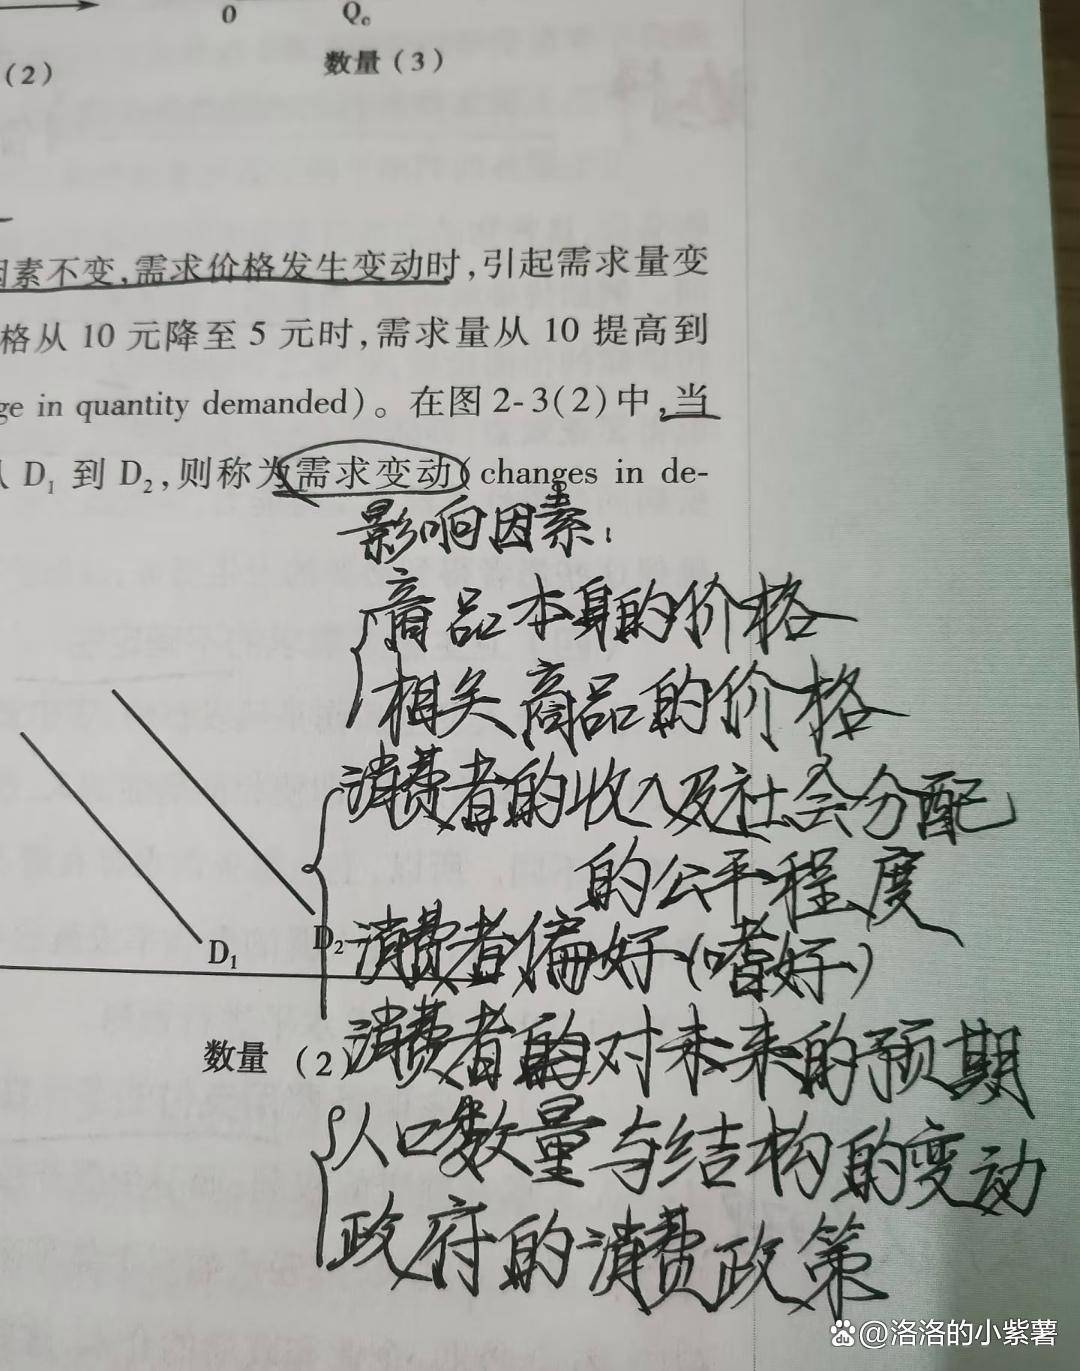 0 Qc
(2)
数量(3)
因素不变,需求价格发生变动时,引起需求量变
格从10元降至5元时,需求量从10提高到
ge in quantity demanded)。在图2-3(2)中,当
从D₁到D₂,则称为需求变动(changes in de-
影响因素:
商品本身的价格
相关商品的价格
消费者的收入及社会分配
的公平程度
D₁
D₂
消费者偏好(嗜好)
数量(2)
消费者的对未来的预期
人口数量与结构的变动
政府的消费政策
@洛洛的小紫薯